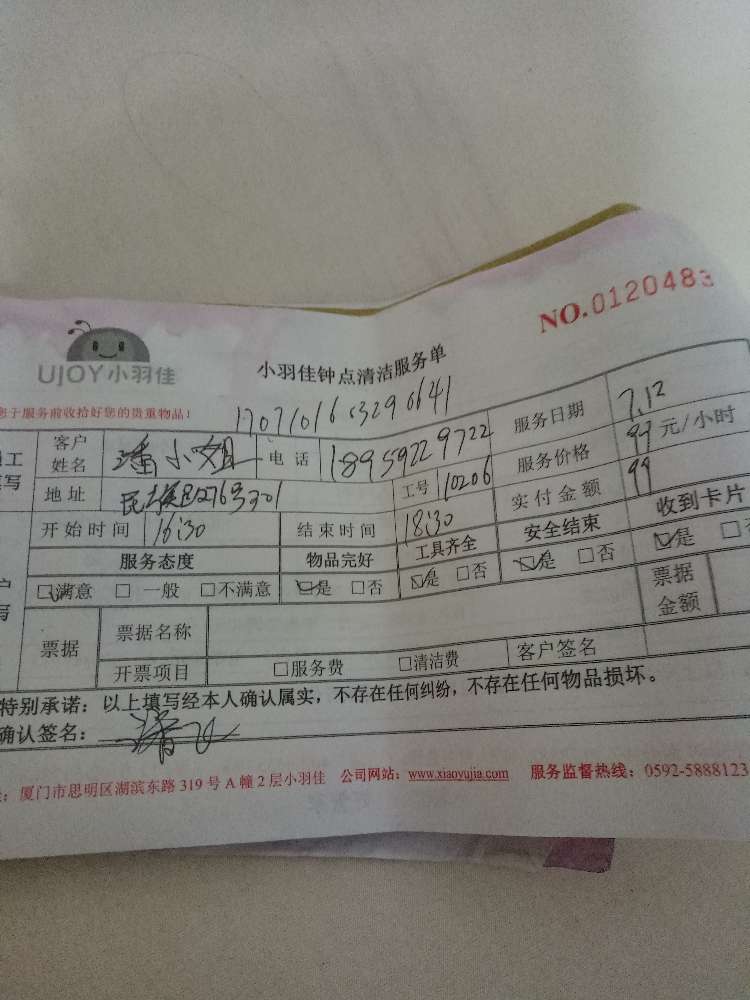 NO.0120483
UJOY小羽佳
小羽佳钟点清洁服务单
您于服务前收拾好您的贵重物品!
客户姓名 潘小姐 电话 18959229722 服务日期 7.12
地址 276号 301 工号 10206 服务价格 99 元/小时
开始时间 16:30 结束时间 18:30 实付金额 99
服务态度 物品完好 工具齐全 安全结束 收到卡片
☑满意 □一般 □不满意 ☑是 □否 ☑是 □否 ☑是 □否 ☑是
票据 票据名称 票据金额
开票项目 □服务费 □清洁费 客户签名
特别承诺：以上填写经本人确认属实，不存在任何纠纷，不存在任何物品损坏。
确认签名：
厦门市思明区湖滨东路 319 号 A 幢 2 层小羽佳 公司网站：www.xiaoyujia.com 服务监督热线：0592-5888123